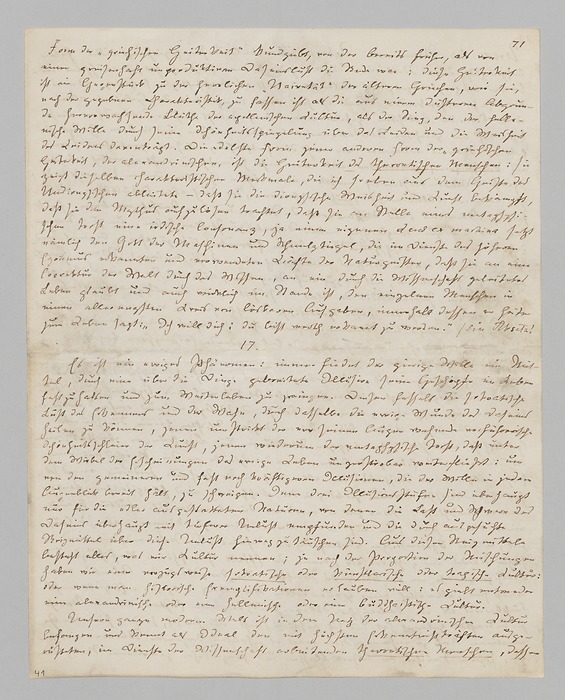 71
Form der „griechischen Heiterkeit" kundgiebt, von der bereits früher, als von
einer greisenhaft unproduktiven Daseinslust die Rede war: diese Heiterkeit
ist ein Gegenstück zu der herrlichen „Naivetät" der älteren Griechen, wie sie,
nach der gegebenen Charakteristik, zu fassen ist als die aus einem düsteren Abgrun-
de hervorwachsende Blüthe der apollinischen Cultur, als der Sieg, den der helle-
nische Wille durch seine Schönheitsspiegelung über das Leiden und die Weisheit
des Leidens davonträgt. Die edelste Form jener anderen Form der griechischen
Heiterkeit, der alexandrinischen, ist die Heiterkeit des theoretischen Menschen: sie
zeigt dieselben charakteristischen Merkmale, die ich soeben aus dem Geiste des
Undionysischen ableitete – daß sie die dionysische Weisheit und Kunst bekämpft,
daß sie den Mythus aufzulösen trachtet, daß sie an Stelle eines metaphysi-
schen Trost eine irdische Consonanz, ja einen eigenen deus ex machina setzt
nämlich den Gott der Maschinen und Schmelztiegel, die im Dienste des höheren
Egoismus erkannten und verwendeten Kräfte der Naturgeister, daß sie an eine
Correktur der Welt durch das Wissen, an ein durch die Wissenschaft geleitetes
Leben glaubt und auch wirklich im Stande ist, den einzelnen Menschen in
einen allerengsten Kreis von lösbaren Aufgaben, innerhalb dessen er heiter
zum Leben sagt: „Ich will dich: du bist werth erkannt zu werden."
17.
Es ist ein ewiges Phänomen: immer findet der gierige Wille ein Mit-
tel, durch eine über die Dinge gebreitete Illusion seine Geschöpfe im Leben
festzuhalten und zum Weiterleben zu zwingen. Diesen fesselt die sokratische
Lust des Erkennens und der Wahn, durch dasselbe die ewige Wunde des Daseins
heilen zu können, jenen umstrickt der vor seinen Augen wehende verführerische
Schönheitsschleier der Kunst, jenen wiederum der metaphysische Trost, daß unter
dem Wirbel der Erscheinungen das ewige Leben unzerstörbar weiterfließt: um
von den gemeineren und fast noch kräftigeren Illusionen, die der Wille in jedem
Augenblick bereit hält, zu schweigen. Jene drei Illusionsstufen sind überhaupt
nur für die edler ausgestatteten Naturen, von denen die Last und Schwere des
Daseins überhaupt mit tieferer Unlust empfunden und die durch ausgesuchte
Reizmittel über diese Unlust hinwegzutäuschen sind. Aus diesen Reizmitteln
besteht alles, was wir Cultur nennen: je nach der Proportion der Mischungen
haben wir eine vorzugsweise sokratische oder künstlerische oder tragische Cultur:
oder wenn man historische Exemplifikationen erlauben will: es giebt entweder
eine alexandrinische oder eine hellenische oder eine buddhaistische Cultur.
Unsere ganze moderne Welt ist in dem Netz der alexandrinischen Cultur
befangen und kennt als Ideal den mit höchsten Erkenntnißkräften ausge-
rüsteten, im Dienste der Wissenschaft arbeitenden theoretischen Menschen, dessen
41